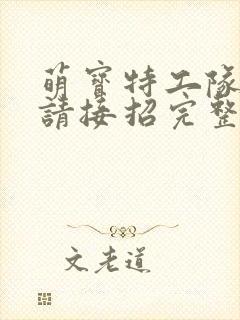 萌寶特工隊
請接招完整
文老道